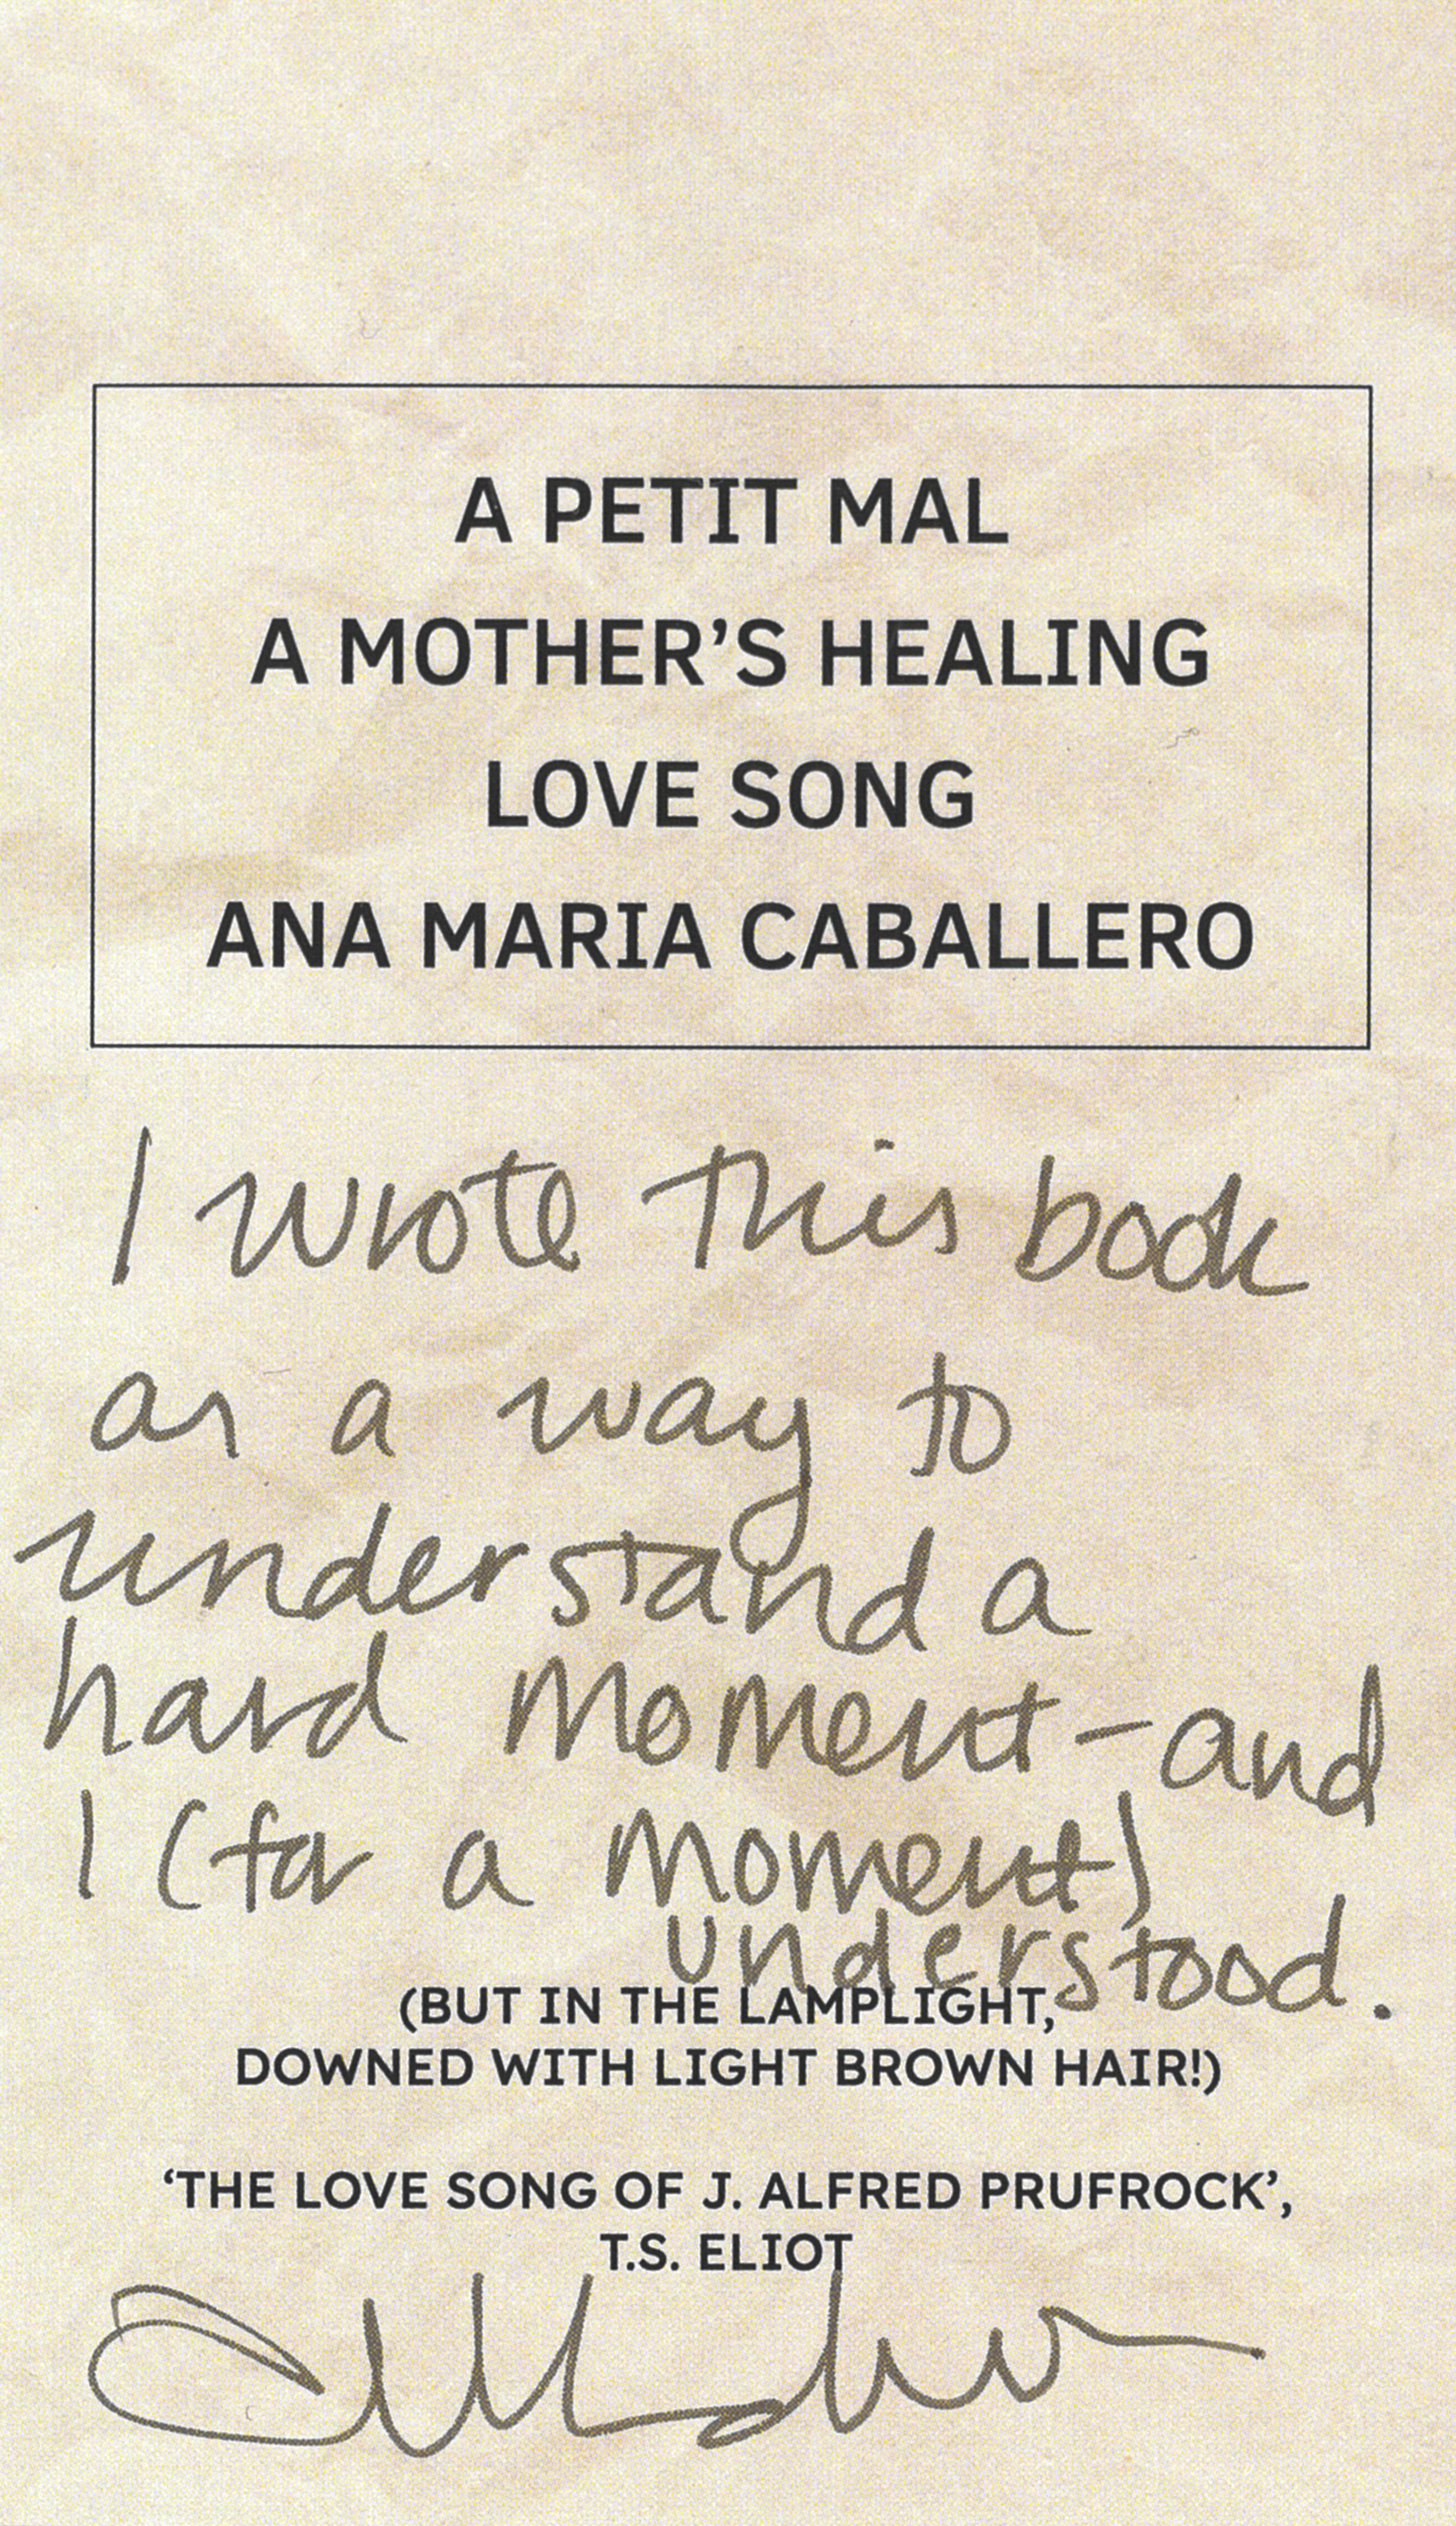 A PETIT MAL
A MOTHER’S HEALING
LOVE SONG
ANA MARIA CABALLERO
I wrote this book
as a way to
understand a
hard moment – and
I (for a moment)
understood.
(BUT IN THE LAMPLIGHT,
DOWNED WITH LIGHT BROWN HAIR!)
‘THE LOVE SONG OF J. ALFRED PRUFROCK’,
T.S. ELIOT